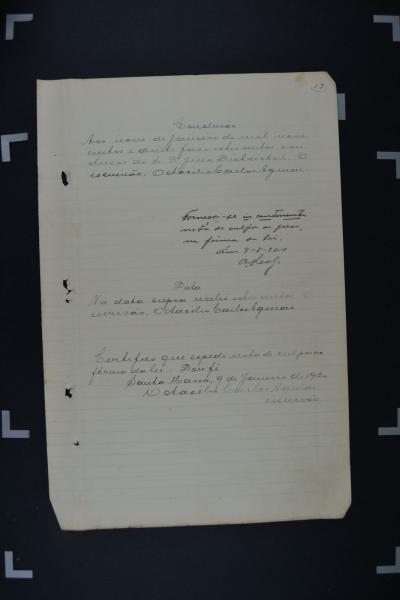 13
Conclusão
Aos nove de Janeiro de mil nove
centos e vinte faço estes autos con
clusos ao Dr. Juiz Districtal. O
escrivão, Octacilio Carlos Aguiar
Forneça-se in continenti
nota de culpa ao preso,
na fórma da lei.
Em 9-1-920
Data
Na data supra recebi estes autos. O
escrivão, Octacilio Carlos Aguiar
Certifico que expedi nota de culpa na
fórma da lei. Dou fé
Santa Maria, 9 de Janeiro de 1920
Octacilio Carlos Aguiar
escrivão